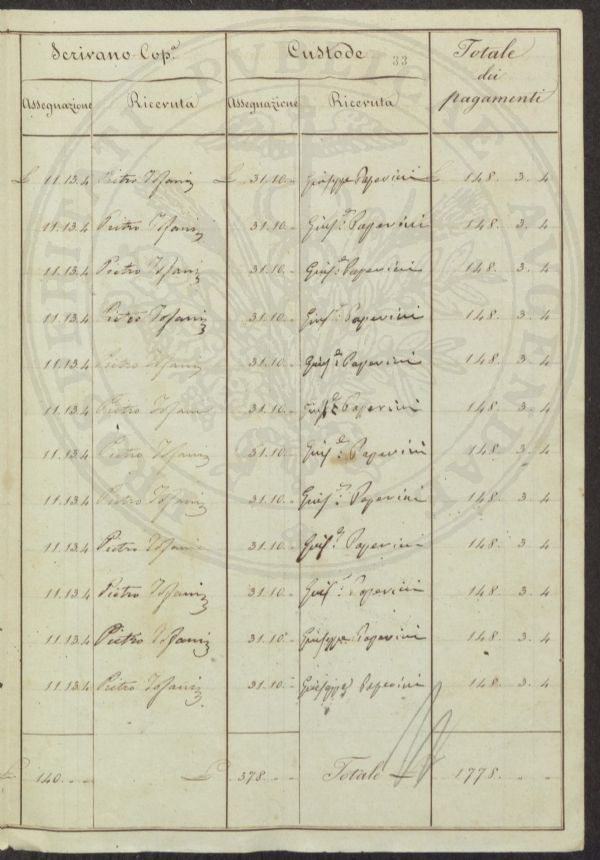 Scrivano Cop.ª Custode 33 Totale dei pagamenti
Assegnazione Ricevuta Assegnazione Ricevuta
£ 11.13.4 Pietro Tofani £ 31.10. Giuseppe Papernini £ 148. 3. 4
11.13.4 Pietro Tofani 31.10. Gius.e Papernini 148. 3. 4
11.13.4 Pietro Tofani 31.10. Gius.e Papernini 148. 3. 4
11.13.4 Pietro Tofani 31.10. Gius.e Papernini 148. 3. 4
11.13.4 Pietro Tofani 31.10. Gius.e Papernini 148. 3. 4
11.13.4 Pietro Tofani 31.10. Gius.e Papernini 148. 3. 4
11.13.4 Pietro Tofani 31.10. Gius.e Papernini 148. 3. 4
11.13.4 Pietro Tofani 31.10. Gius.e Papernini 148. 3. 4
11.13.4 Pietro Tofani 31.10. Gius.e Papernini 148. 3. 4
11.13.4 Pietro Tofani 31.10. Gius.e Papernini 148. 3. 4
11.13.4 Pietro Tofani 31.10. Giuseppe Papernini 148. 3. 4
11.13.4 Pietro Tofani 31.10. Giuseppe Papernini 148. 3. 4
£ 140. £ 378. Totale £ 1778.